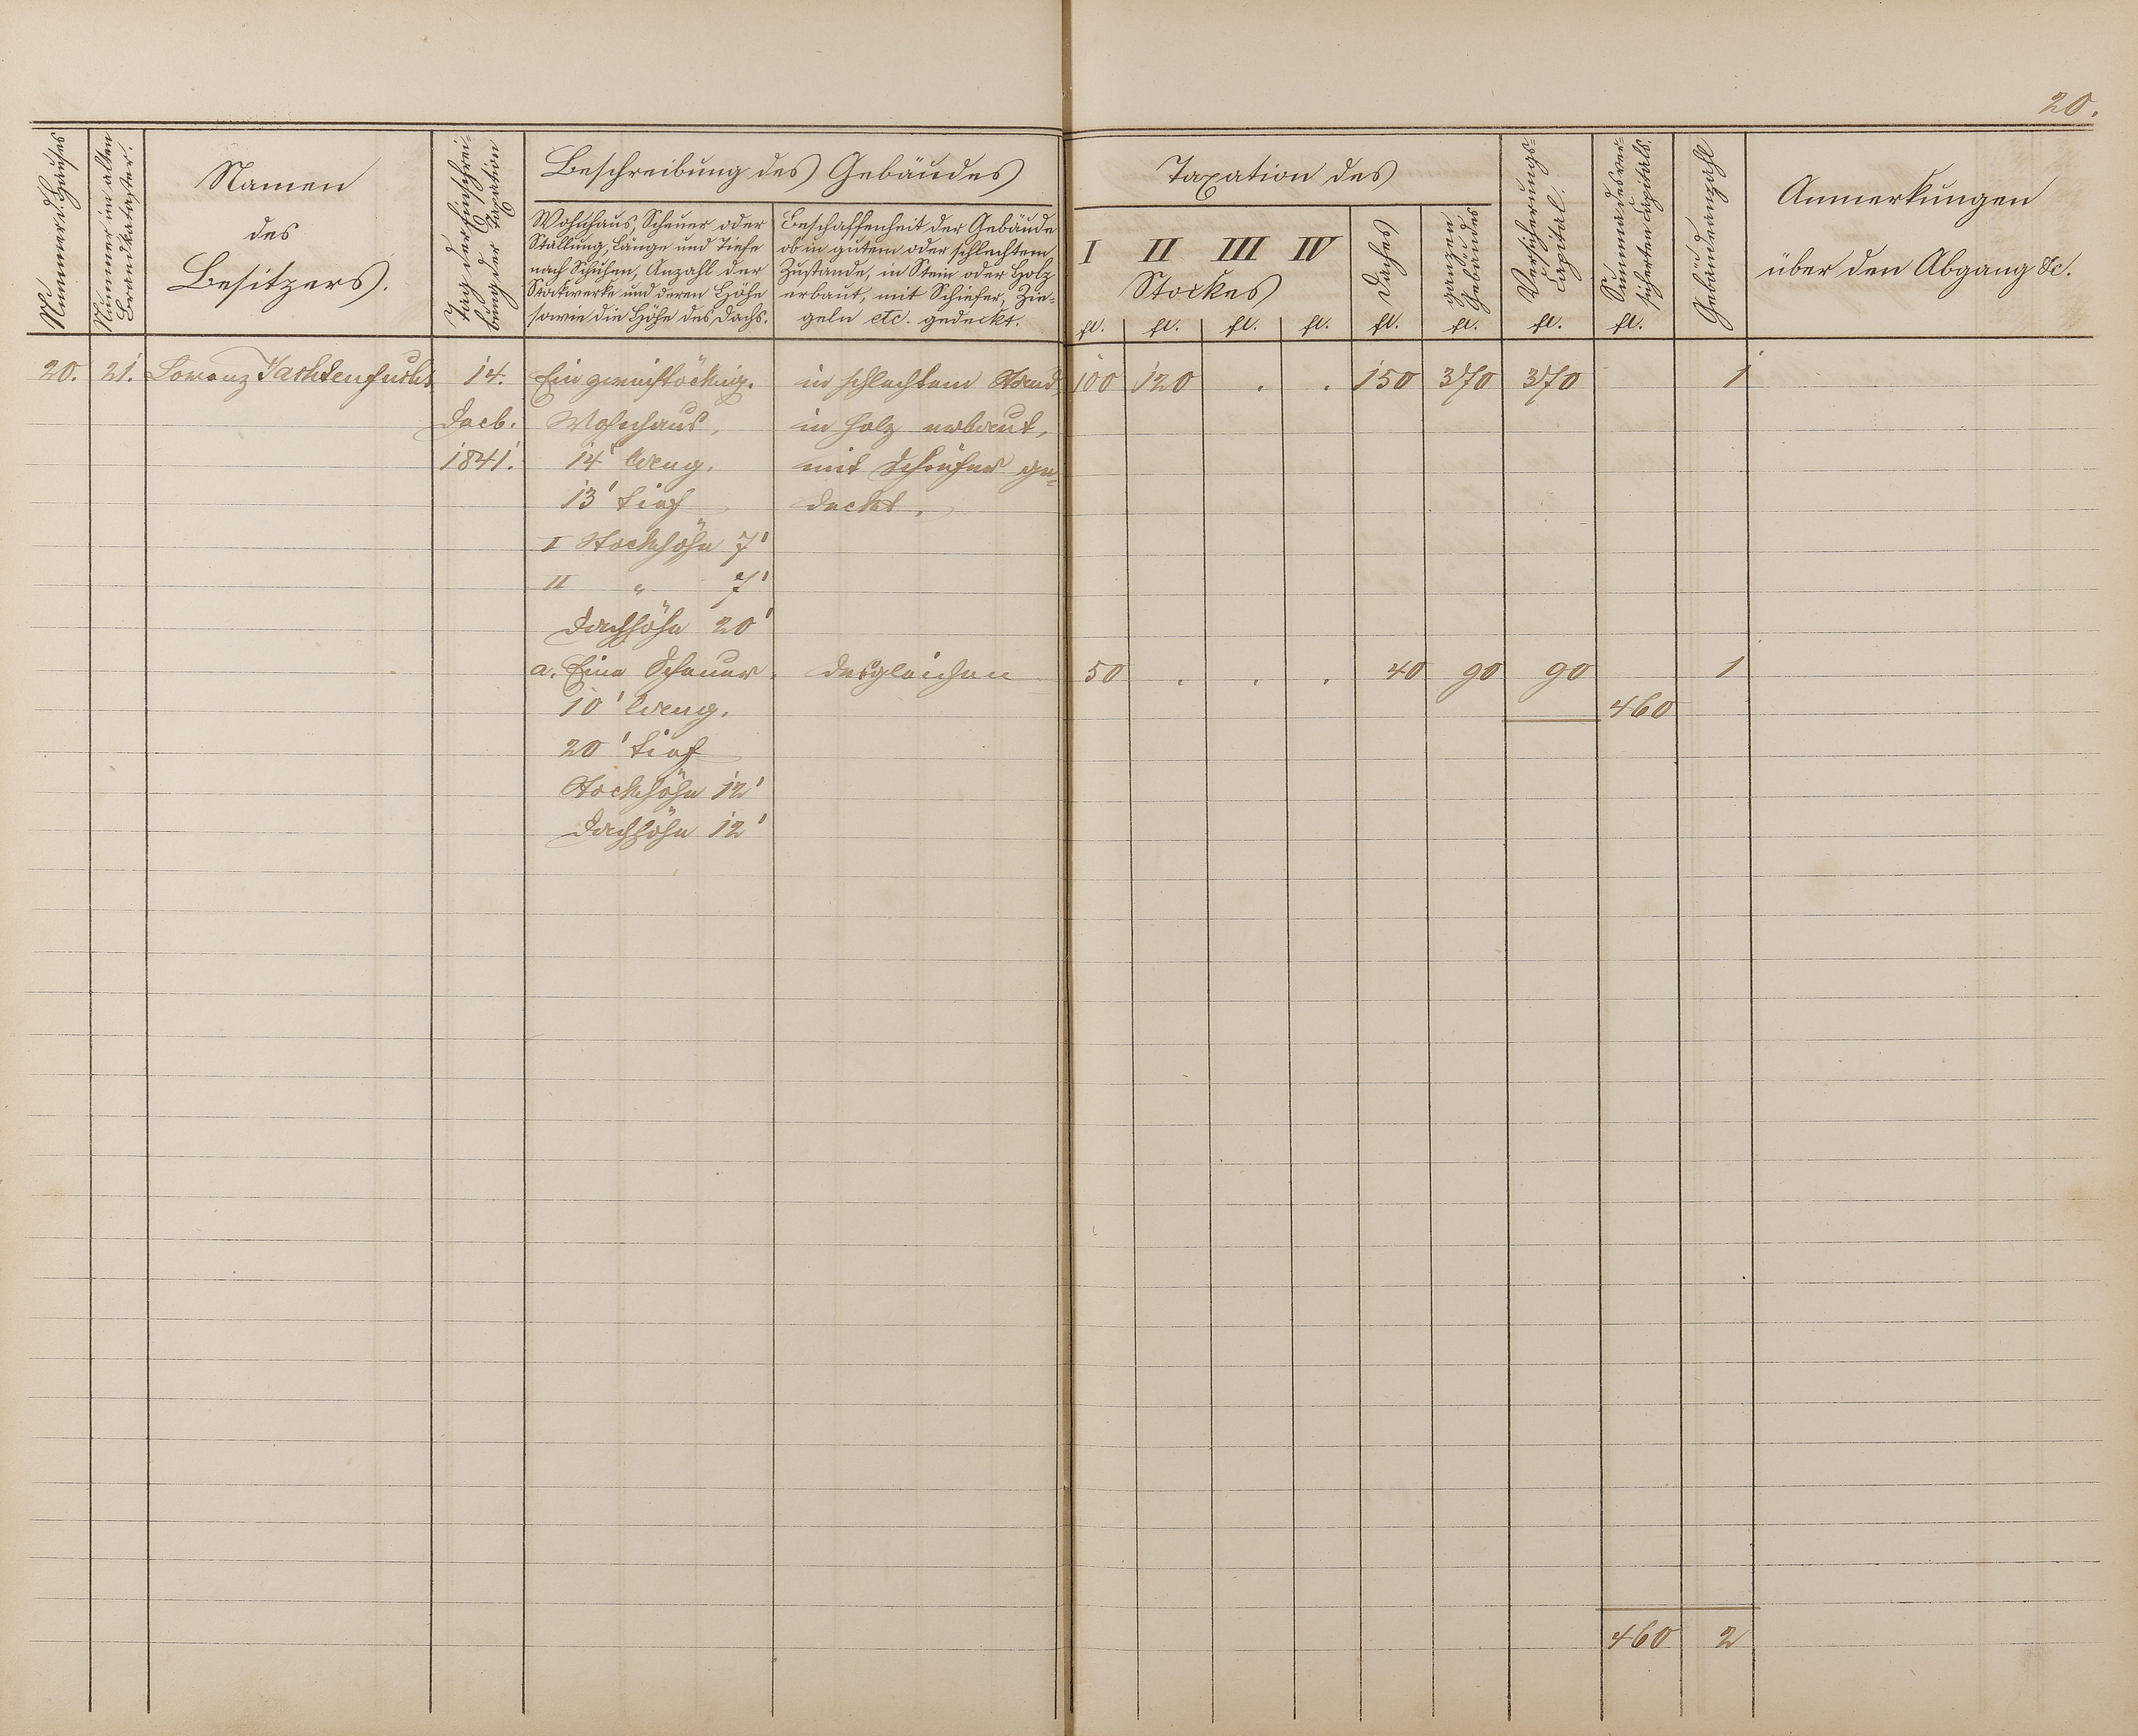 20.
Nummer d. Hauses
Nummer im alten
Brandkataster.
Namen
des
Besitzers.
Tag der Einschrei-
bung der Taxation
Beschreibung des Gebäudes
Wohnhaus, Scheuer oder
Stallung, Länge und Tiefe
nach Schuhen, Anzahl der
Stockwerke und deren Höhe
sowie die Höhe des Dachs.
Beschaffenheit der Gebäude
ob in gutem oder schlechtem
Zustande, in Stein oder Holz
erbaut, mit Schiefer, Zie-
geln etc. gedeckt.
Taxation des
I II III IV
Stockes
Daches
ganzen
Gebäudes
Versicherungs-
Capital.
Summa des ver-
sicherten Capitals.
Gebäudeanzahl
Anmerkungen
über den Abgang &c.
fl. fl. fl. fl. fl. fl. fl. fl.
20. 21. Lorenz 14. Ein zweistöckig. in schlechtem Stand, 100 120 . . 150 370 370 1
Decb. Wohnhaus, in Holz erbaut,
1841. 14' lang. mit Schiefer ge-
13' tief deckt.
I Stockhöhe 7'
II " 7'
Dachhöhe 20'
a. Eine Scheuer. desgleichen 50 . . . 40 90 90 1
10' lang. 460
20' tief
Stockhöhe 12'
Dachhöhe 12'
460 2